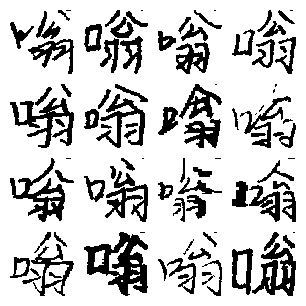 嗡嗡嗡嗡
嗡嗡嗡嗡
嗡嗡嗡嗡
嗡嗡嗡嗡